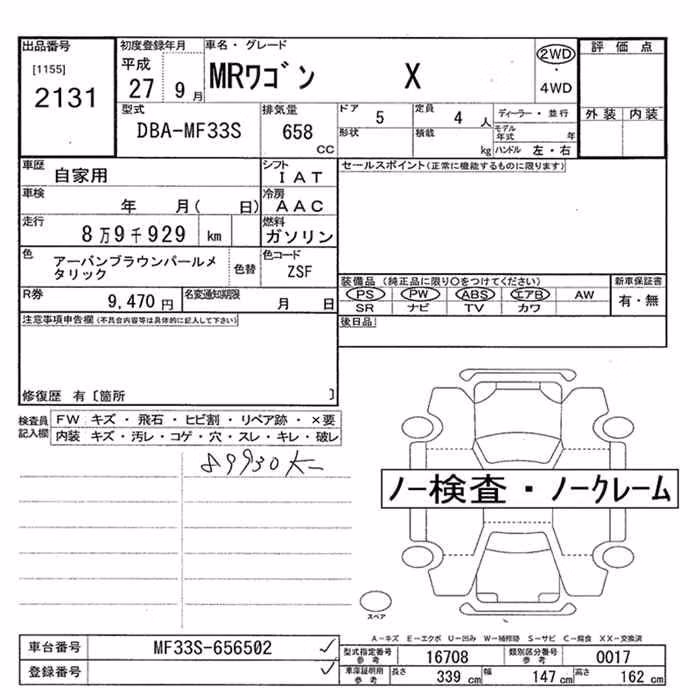 出品番号
[1155]
2131
初度登録年月
平成
27 9月
車名・グレード
MRワゴン X
2WD
・
4WD
評価点
外装 内装
型式
DBA-MF33S
排気量
658
cc
ドア 5
形状
定員 4 人
積載 kg
ディーラー・並行
モデル年式 年
ハンドル 左・右
車歴
自家用
シフト
IAT
セールスポイント(正常に機能するものに限ります)
車検
年 月( 日)
冷房
AAC
走行
8万9千929 km
燃料
ガソリン
色
アーバンブラウンパールメタリック
色替
色コード
ZSF
R券
9,470円
名変通知期限
月 日
装備品(純正品に限り○をつけてください)
PS PW ABS エアB AW
SR ナビ TV カワ
新車保証書
有・無
後日品
注意事項申告欄(不具合内容等は具体的に記入して下さい)
修復歴 有〔箇所 〕
検査員
記入欄
FW キズ・飛石・ヒビ割・リペア跡・×要
内装 キズ・汚レ・コゲ・穴・スレ・キレ・破レ
89930K
ノー検査・ノークレーム
スペア
A-キズ E-エクボ U-凹み W-補修跡 S-サビ C-腐食 XX-交換済
車台番号 MF33S-656502
登録番号
型式指定番号
参考
16708
類別区分番号
参考
0017
車庫証明用
参考
長さ 339 cm 幅 147 cm 高さ 162 cm